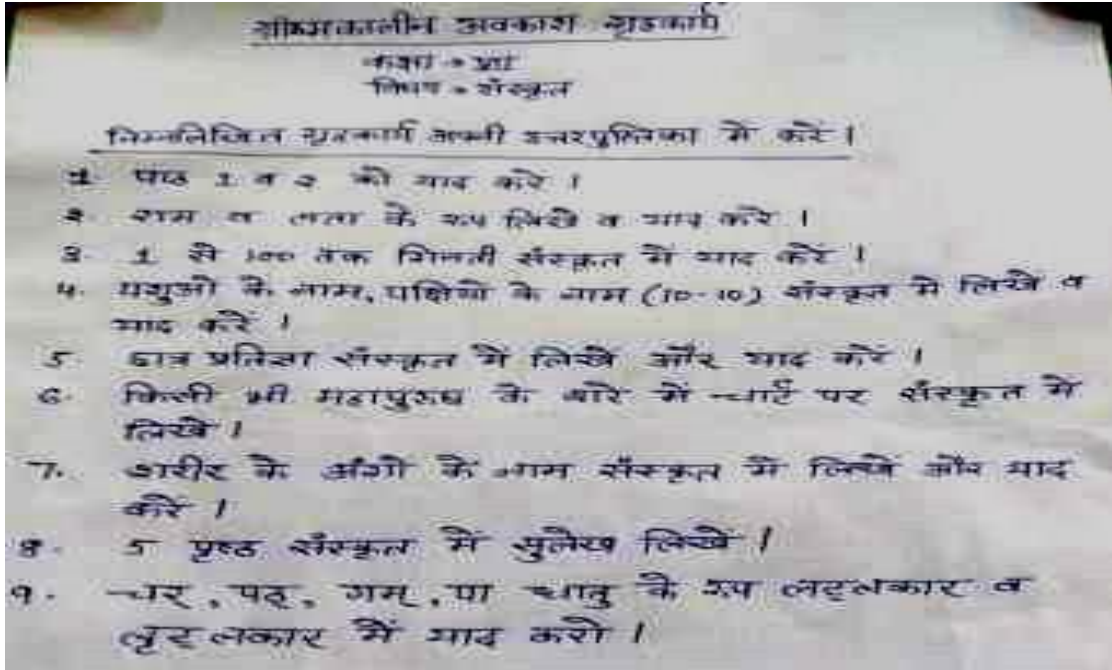 ग्रीष्मकालीन अवकाश गृहकार्य
कक्षा →
विषय = संस्कृत
निम्नलिखित गृहकार्य अपनी उत्तरपुस्तिका में करें।
1. पाठ 1 व 2 को याद करे।
2. राम व लता के रूप लिखे व याद करे।
3. 1 से 100 तक गिनती संस्कृत में याद करें।
4. पशुओ के नाम, पक्षियो के नाम (10-10) संस्कृत मे लिखे व
याद करें।
5 छात्र प्रतिज्ञा संस्कृत में लिखें और याद करें।
6. किसी भी महापुरुष के बारे में चार्ट पर संस्कृत में
लिखे।
7. शरीर के अंगो के नाम संस्कृत मे लिखें और याद
करें।
8. 5 पृष्ठ संस्कृत में सुलेख लिखें।
9. चर्, पठ्, गम्, पा धातु के रूप लट्लकार व
लृट्लकार में याद करो।